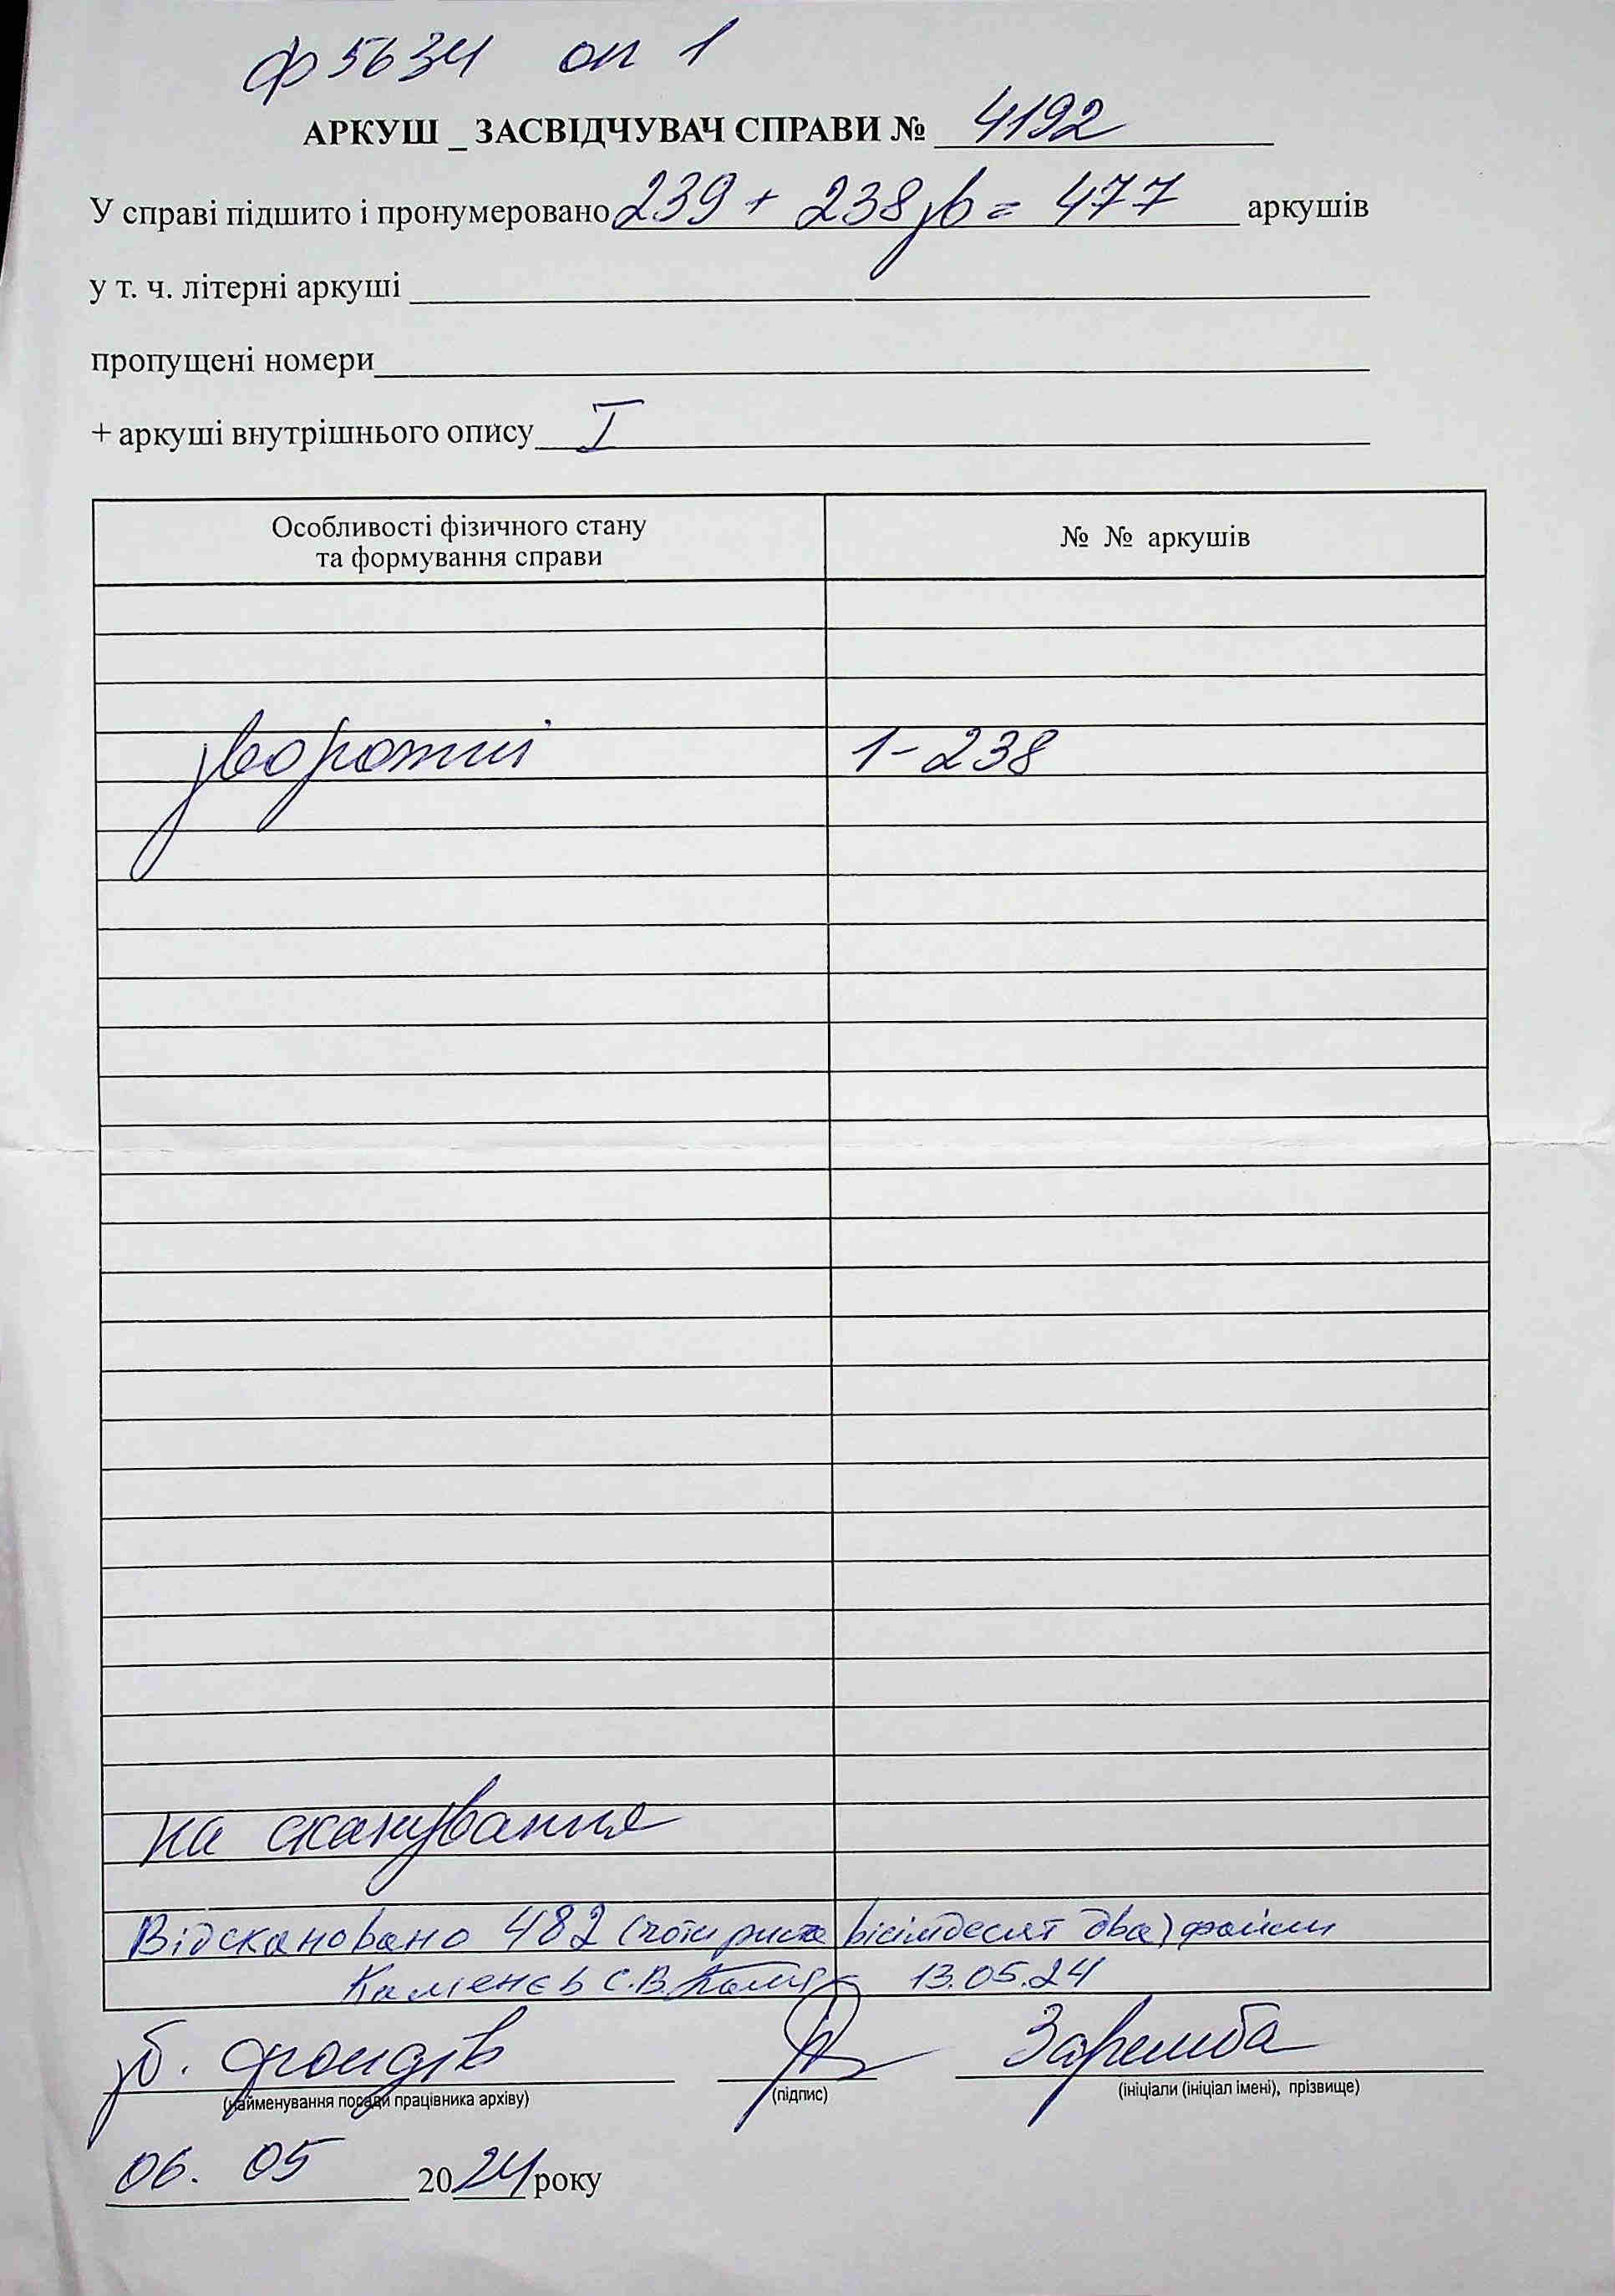 ф 5634 оп 1
АРКУШ _ ЗАСВІДЧУВАЧ СПРАВИ № 4192
У справі підшито і пронумеровано 239 + 238 зв = 477 аркушів
у т. ч. літерні аркуші
пропущені номери
+ аркуші внутрішнього опису I
Особливості фізичного стану та формування справи
№ № аркушів
зворотні 1-238
на сканування
Відскановано 482 (чотириста вісімдесят два) файли
Каменєв С.В. 13.05.24
зб. фондів Заремба
(найменування посади працівника архіву) (підпис) (ініціали (ініціал імені), прізвище)
06. 05 2024 року